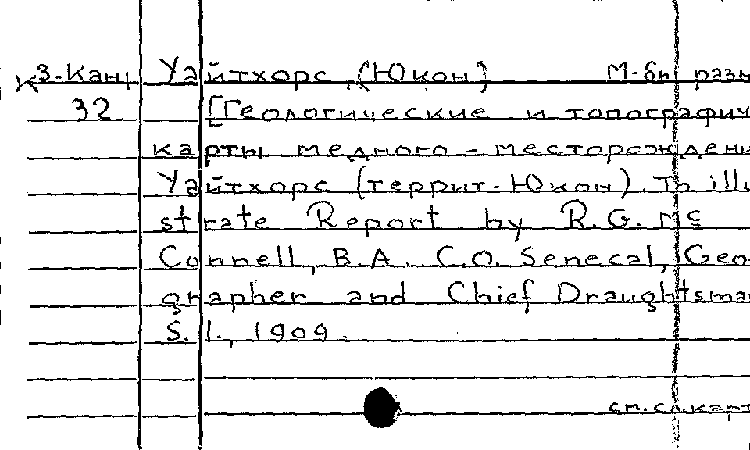 К3-Кан Уайтхорс (Юкон) М-бы разн
32 [Геологические и топографич
карты медного-месторождени
Уайтхорс (террит. Юкон) To illu
strate Report by R.G. Mc
Connell, B.A. C.O. Senecal, Geo-
grapher and Chief Draughtsman
S. l., 1909.
см. сл. карт